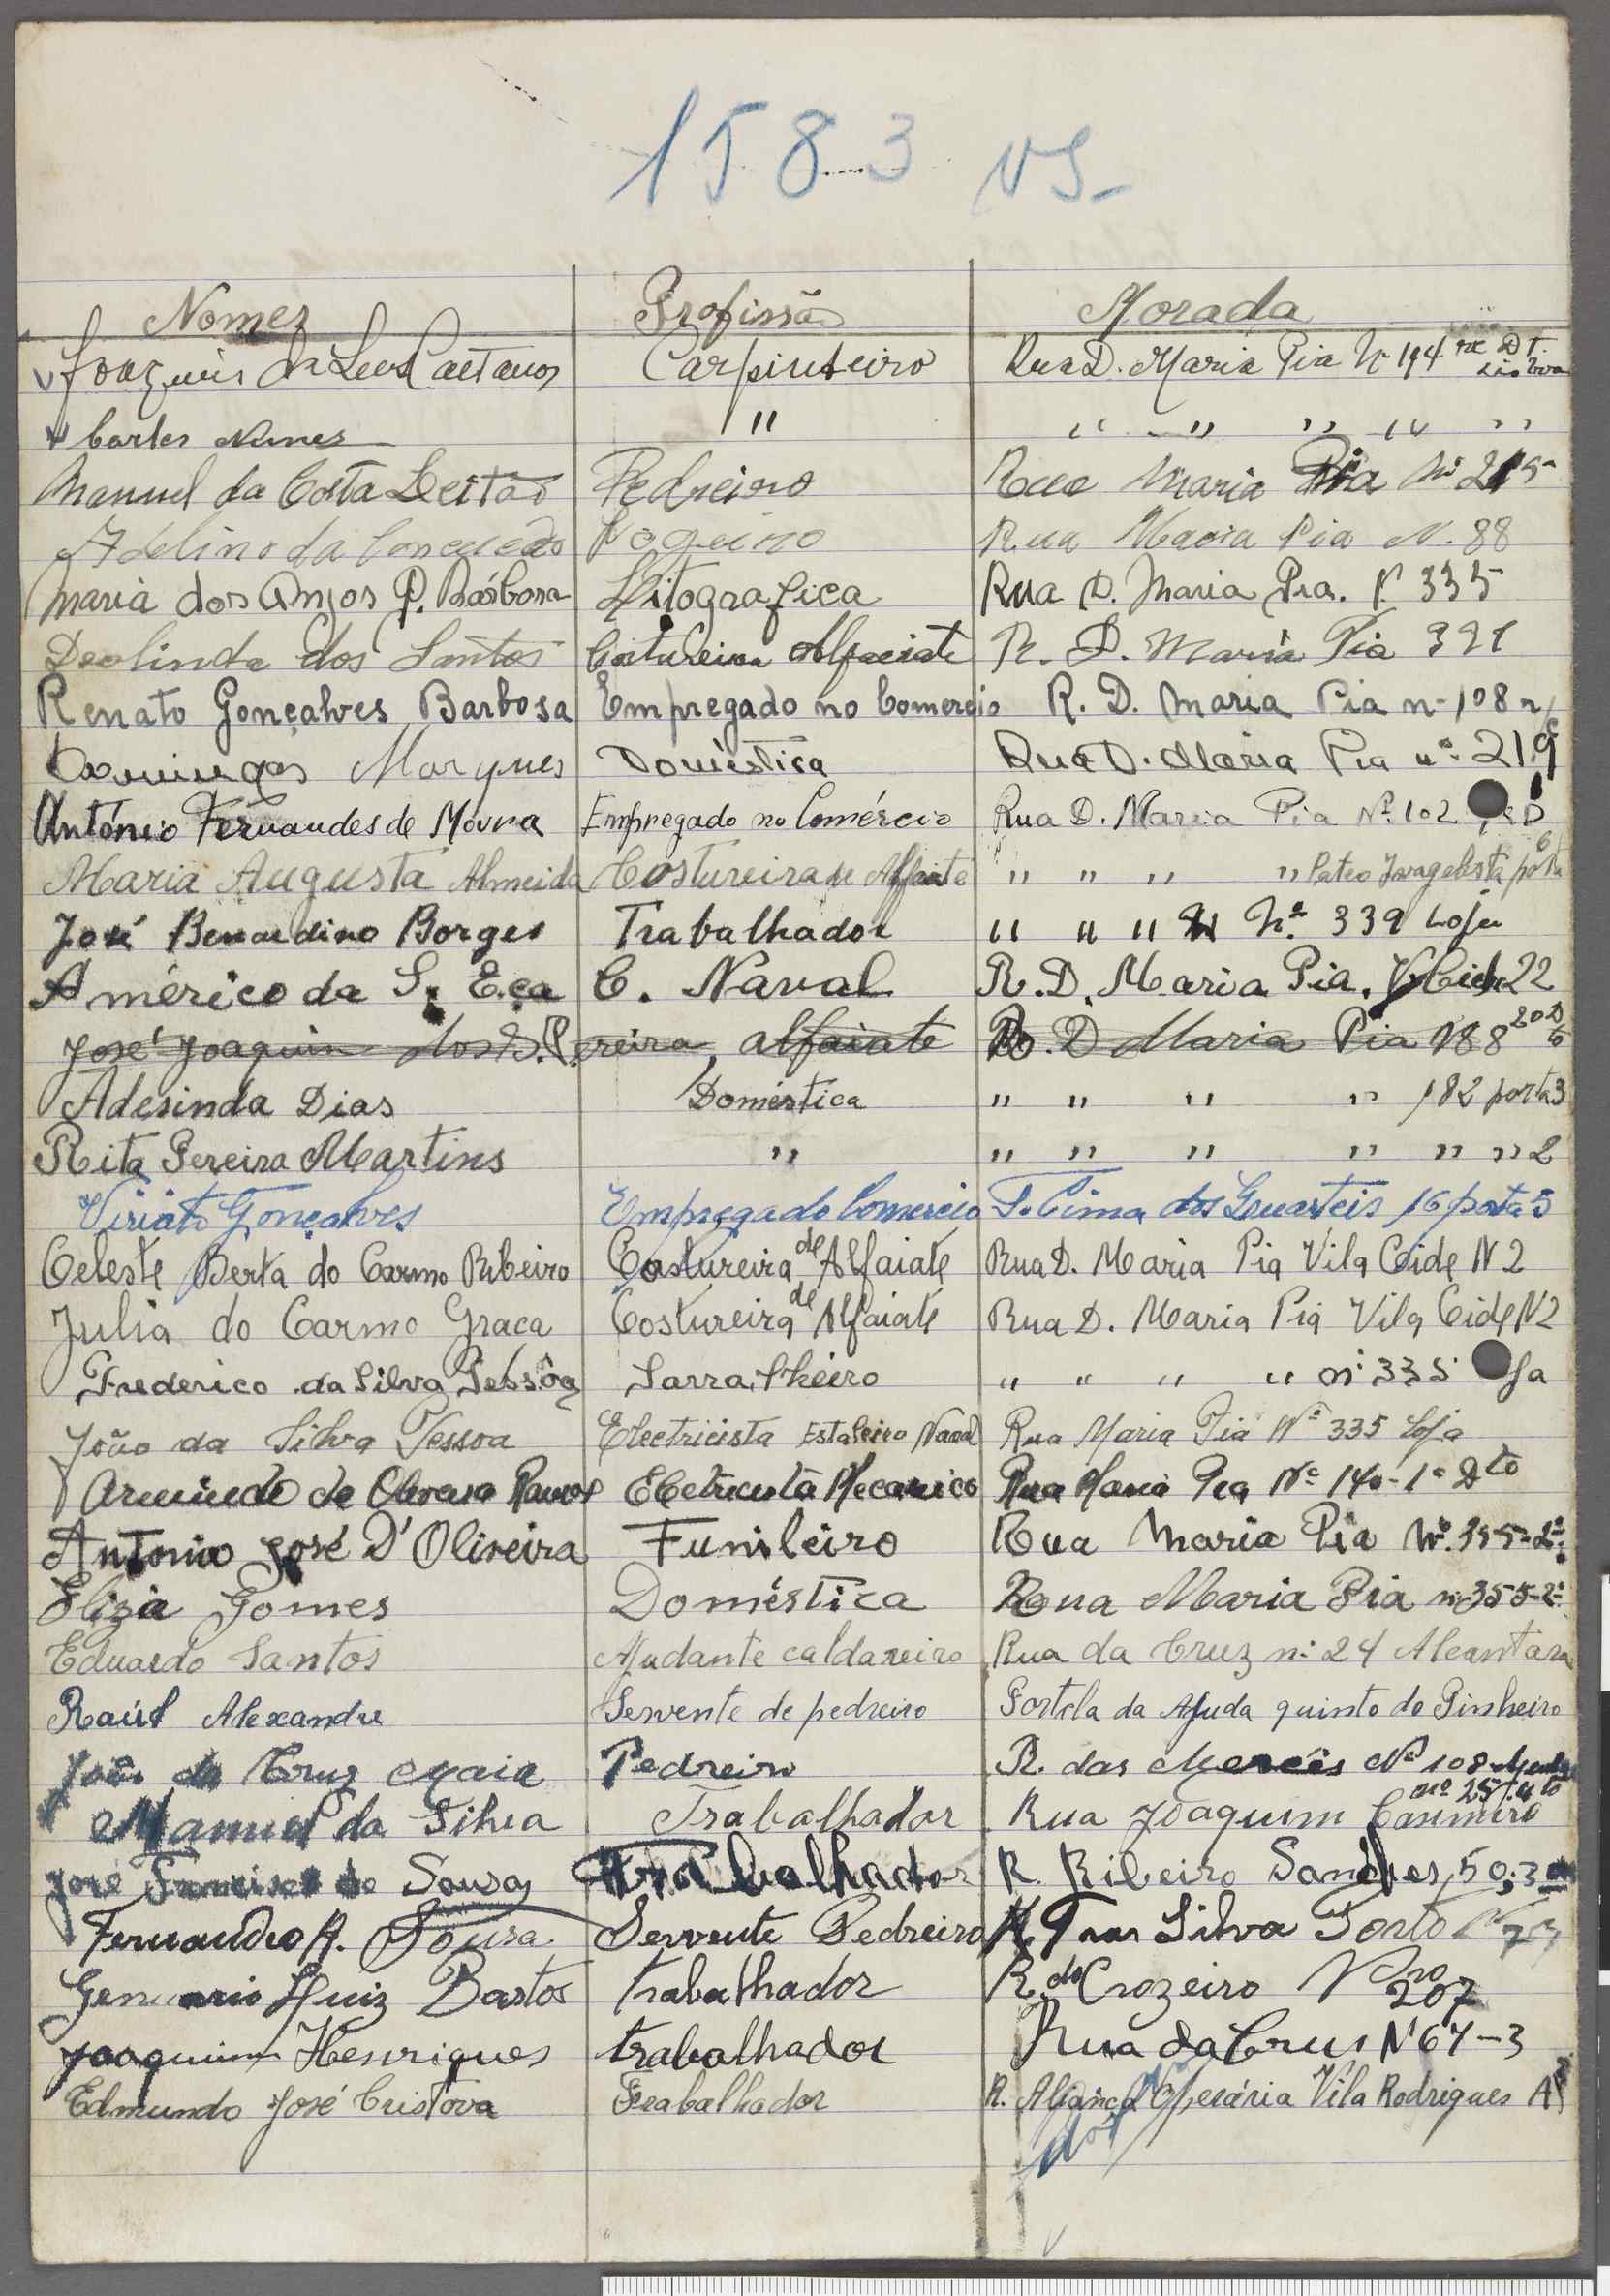 1583 VS-
Nomes Profissão Morada
Joaquim da Caetano Carpinteiro Rua D. Maria Pia Nº 194 r/c Dt. Lisboa
Carlos Nunes " " " " " "
Manuel da Costa Leitão Pedreiro Rua Maria Pia Nº 215
Adelino da Conceição Rua Maria Pia N. 88
Maria dos Anjos P. Bárbosa Litografica Rua D. Maria Pia. Nº 335
Deolinda dos Santos Costureira Alfaiate R. D. Maria Pia 321
Renato Gonçalves Barbosa Empregado no Comercio R. D. Maria Pia n- 108 r/c
Domingas Marques Doméstica Rua D. Maria Pia nº 219
António Fernandes de Moura Empregado no Comércio Rua D. Maria Pia Nº 102
Maria Augusta Almeida Costureira de Alfaiate " " " " Pateo porta 6
José Bernardino Borges Trabalhador " " " " Nº 339 Loja
Américo da S. Eça C. Naval R. D. Maria Pia, V. Cide 22
José Joaquim dos S. Pereira, alfaiate R. D Maria Pia 188
Adesinda Dias Doméstica " " " " 182 porta 3
Rita Pereira Martins " " " " " " " 2
Viriato Gonçalves Empregado Comercio T. Cima dos Quarteis 16 porta 5
Celeste Berta do Carmo Ribeiro Costureira de Alfaiate Rua D. Maria Pia Vila Cide N 2
Julia do Carmo Graca Costureira de Alfaiate Rua D. Maria Pia Vila Cide N 2
Frederico da Silva Pessôa Sarralheiro " " " " nº 335 ja
João da Silva Pessoa Electricista Estaleiro Naval Rua Maria Pia Nº 335 Loja
Armindo de Oliveira Ramos Eletricista Mecanico Rua Maria Pia Nº 140-1º Dto
Antonio José D'Oliveira Funileiro Rua Maria Pia Nº 355-2º
Eliza Gomes Doméstica Rua Maria Pia nº 355-2º
Eduardo Santos Ajudante caldareiro Rua da Cruz nº 24 Alcantara
Raúl Alexandre Servente de pedreiro Portela da Ajuda quinta do Pinheiro
João da Cruz Maia Pedreiro R. das Mercês Nº 108 Ajuda
Manuel da Silva Trabalhador Rua Joaquim Casimiro nº 25
José Francisco de Sousa Trabalhador R. Ribeiro Sanches, 50, 3
Fernando A. Sousa Servente Pedreiro Silva Porto
Genuario Luiz Bastos trabalhador R. do Crozeiro Nro 207
Joaquim Henriques trabalhador Rua da Crus Nº 67-3
Edmundo José Cristova Trabalhador R. Aliança Operária Vila Rodrigues